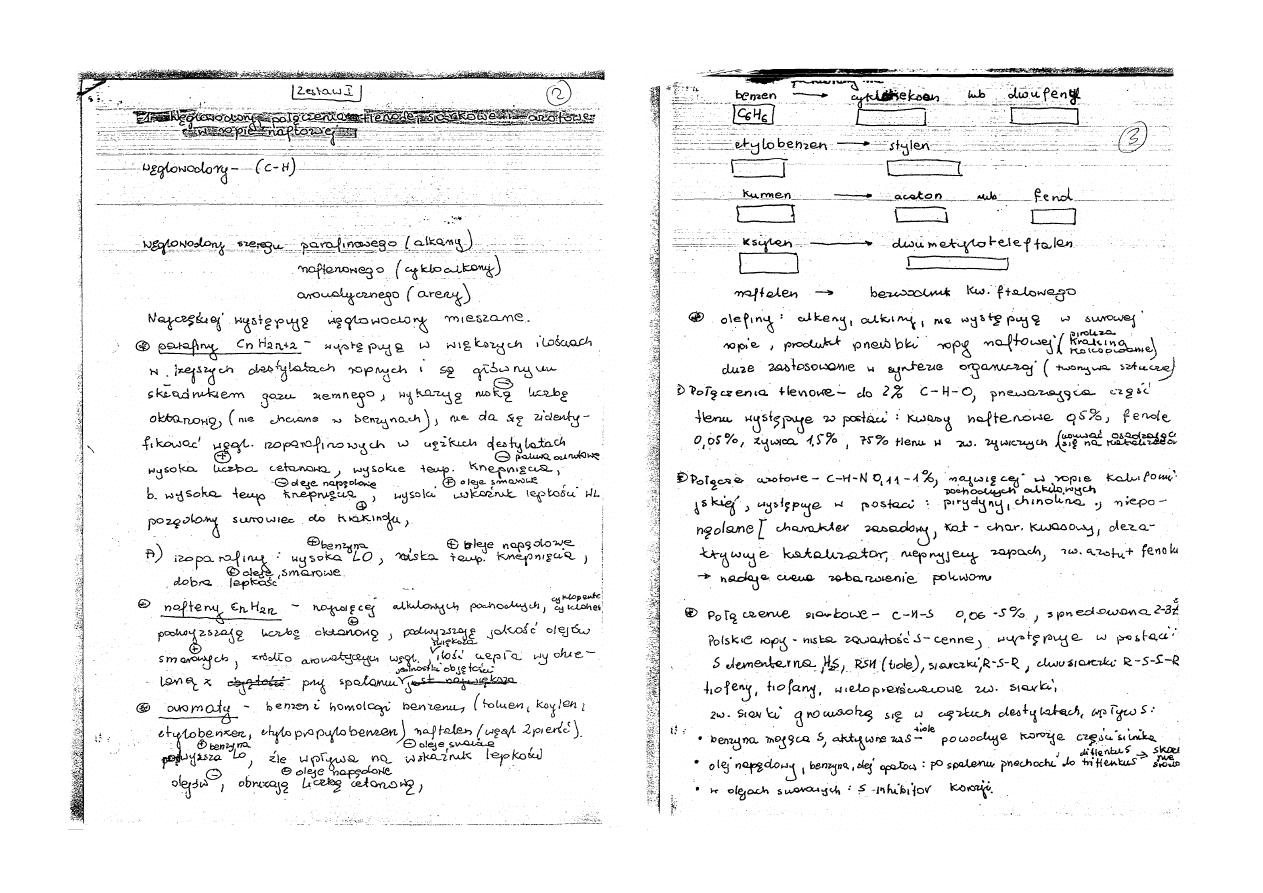 Zestaw I
2
1. Węglowodory, połączenia tlenowe, siarkowe i azotowe
w ropie naftowej
węglowodory - (C-H)
węglowodory szeregu parafinowego (alkany)
naftenowego (cykloalkany)
aromatycznego (areny)
Najczęściej występują węglowodory mieszane.
parafiny CnH2n+2 - występują w większych ilościach
w lżejszych destylatach ropnych i są głównym
składnikiem gazu ziemnego, wykazują niską liczbę
oktanową, (nie chciane w benzynach), nie da się zidenty-
fikować węgl. izoparafinowych w ciężkich destylatach
⊕ ⊖ paliwa odrzutowe
wysoka liczba cetanowa, wysokie temp. krzepnięcia,
⊖ oleje napędowe ⊕ oleje smarowe
b. wysoka temp krzepnięcia, wysoki wskaźnik lepkości WL
pożądany surowiec do krakingu,
⊕ benzyna ⊕ oleje napędowe
A) izoparafiny: wysoka LO, niska temp. krzepnięcia,
⊕ oleje smarowe
dobra lepkość
nafteny CnH2n - najwięcej alkilowych pochodnych,
podwyższają liczbę oktanową, podwyższają jakość olejów
smarowych, źródło aromatycznych węgl. zwiększa ilość ciepła wydzie-
loną z objętości jednostki objętości przy spalaniu jest największa
aromaty - benzen i homologi benzenu, (toluen, ksylen,
etylobenzen, etylopropylobenzen) naftalen (węgl 2 pierść).
⊕ benzyna ⊖ oleje smarowe
podwyższa LO, źle wpływa na wskaźnik lepkości
⊖ oleje napędowe
olejów, obniżają liczbę cetanową,
benzen → cykloheksan lub dwufenyl
C6H6
3
etylobenzen → stylen
kumen → aceton lub fenol
ksylen → dwumetylotereftalen
naftalen → bezwodnik kw. ftalowego
olefiny: alkeny, alkiny, nie występują w surowej
ropie, produkt przeróbki ropy naftowej (piroliza kraking koksowanie)
duże zastosowanie w syntezie organicznej (tworzywa sztuczne)
Połączenia tlenowe - do 2% C-H-O, przeważająca część
tlenu występuje w postaci: kwasy naftenowe 0,5%, fenole
0,05%, żywica 1,5%, 75% tlenu w zw. żywicznych (usuwać osadzają się na katalizator
Połącze azotowe - C-H-N 0,11-1%, najwięcej w ropie kaliforni
pochodnych alkilowych
jskiej, występuje w postaci: pirydyny, chinolina, niepo-
żądane [charakter zasadowy, kat - char. kwasowy, deza-
ktywuje katalizator, nieprzyjemy zapach, zw. azotu + fenolu
→ nadaje ciemne zabarwienie paliwom
Połączenie siarkowe - C-H-S 0,06-5%, sprzedawana 2-3%
Polskie ropy - niska zawartość S - cenne, występuje w postaci:
S elementarna, H2S, RSH (tiole), siarczki, R-S-R, dwusiarczki R-S-S-R
tiofeny, tiofany, wielopierścieniowe zw. siarki,
zw. siarki gromadzą się w ciężkich destylatach, wpływ S:
• benzyna mająca S, aktywne zw S - tiole powoduje korozje części silnika
• olej napędowy, benzyna, olej opałow: po spaleniu przechodzi do ditlenku S → tritlenku S
• w olejach smarowych: S - inhibitor korozji.